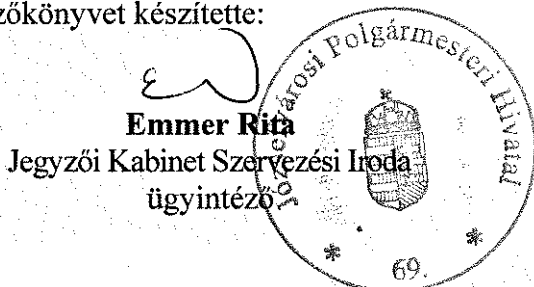 zőkönyvet készítette:
Emmer Rita
Jegyzői Kabinet Szervezési Iroda
ügyintéző
Józsefvárosi Polgármesteri Hivatal
69.